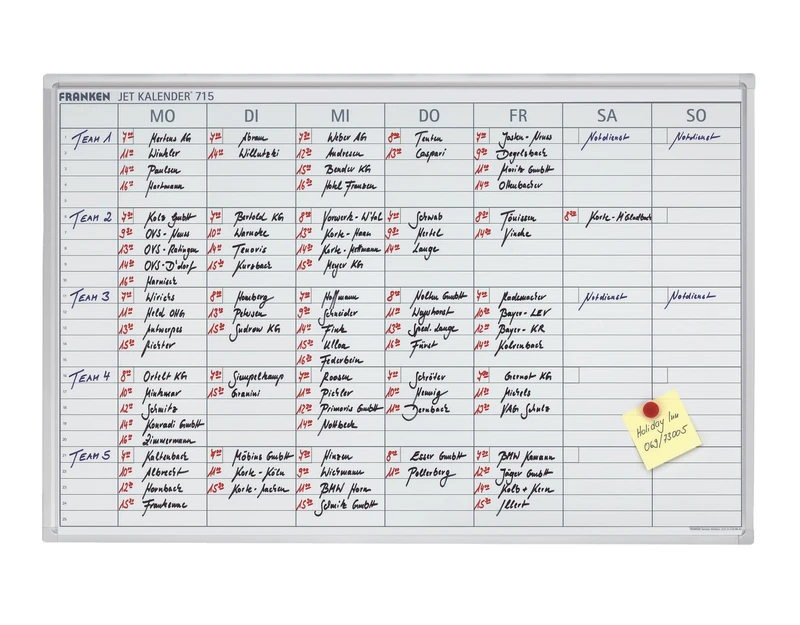 FRANKEN JET KALENDER 715
MO DI MI DO FR SA SO
1 TEAM 1 7⁰⁰ Mertens AG 7⁰⁰ Abram 7³⁰ Weber AG 8⁰⁰ Teuten 7⁰⁰ Notdienst Notdienst
2 11⁰⁰ Winkler 14⁰⁰ Willutzki 12³⁰ Andresen 13⁰⁰ Caspari 9³⁰ Degelsbach
3 14⁰⁰ Paulsen 15⁰⁰ Bender KG 11⁰⁰ Moritz GmbH
4 16⁰⁰ Hartmann 16³⁰ Hotel Franzen 14⁰⁰
5
6 TEAM 2 7³⁰ Kolb GmbH 7⁰⁰ Bertold KG 8⁰⁰ Vorwerk-W'tal 7⁰⁰ Schwab 8⁰⁰ Touissen 8⁰⁰ Korte-M'Gladbach
7 9³⁰ OVS-Neuss 10⁰⁰ Warncke 13⁰⁰ Korte-Haan 9³⁰ Hertel 14⁰⁰
8 13⁰⁰ OVS-Ratingen 14⁰⁰ Tenovis 14⁰⁰ Korte-Mettmann 14⁰⁰ Lange
9 14³⁰ OVS-D'dorf 15⁰⁰ Kursbach 15⁰⁰ Meyer KG
10 16⁰⁰ Harnisch
11 TEAM 3 7⁰⁰ Wirichs 8⁰⁰ Honeberg 7⁰⁰ Hoffmann 8⁰⁰ Nolten GmbH 7⁰⁰ Rademacher Notdienst Notdienst
12 11⁰⁰ Held OHG 13⁰⁰ Petersen 9³⁰ Schneider 11⁰⁰ Wayhorst 10⁰⁰ Bayer-LEV
13 13⁰⁰ Antwerpes 15³⁰ Sudrow KG 14⁰⁰ Fink 13⁰⁰ Sped. Lange 12⁰⁰ Bayer-KR
14 15⁰⁰ Richter 15⁰⁰ Ulloa 16⁰⁰ Fürst 14⁰⁰ Kohrenbach
15 16³⁰ Federbein
16 TEAM 4 8⁰⁰ Ortelt KG 7⁰⁰ Siempelkamp 7⁰⁰ Roosen 7⁰⁰ Schröter 7⁰⁰ Giernot KG
17 10⁰⁰ Minkmar 15⁰⁰ Granini 11⁰⁰ Pichler 10⁰⁰ Hennig 11⁰⁰ Michels
18 12⁰⁰ Schmitz 12³⁰ Primoris GmbH 11⁰⁰ Dernbach 13⁰⁰ VAG Schulz
19 14⁰⁰ Konradi GmbH 14⁰⁰ Nollbeck
20 16⁰⁰ Zimmermann
Holiday Inn
069/73005
21 TEAM 5 7⁰⁰ Kaltenbach 7⁰⁰ Möbius GmbH 7³⁰ Hinzen 8⁰⁰ Esser GmbH 7⁰⁰ BMW Kamann
22 10⁰⁰ Albrecht 11⁰⁰ Korte-Köln 9⁰⁰ Wichmann 11⁰⁰ Pollerberg 12⁰⁰ Jäger GmbH
23 12³⁰ Hornbach 15⁰⁰ Korte-Aachen 11⁰⁰ BMW Horn 14⁰⁰ Kolb + Kern
24 15⁰⁰ Frankenne 15³⁰ Schmitz GmbH 15⁰⁰ Illert
25